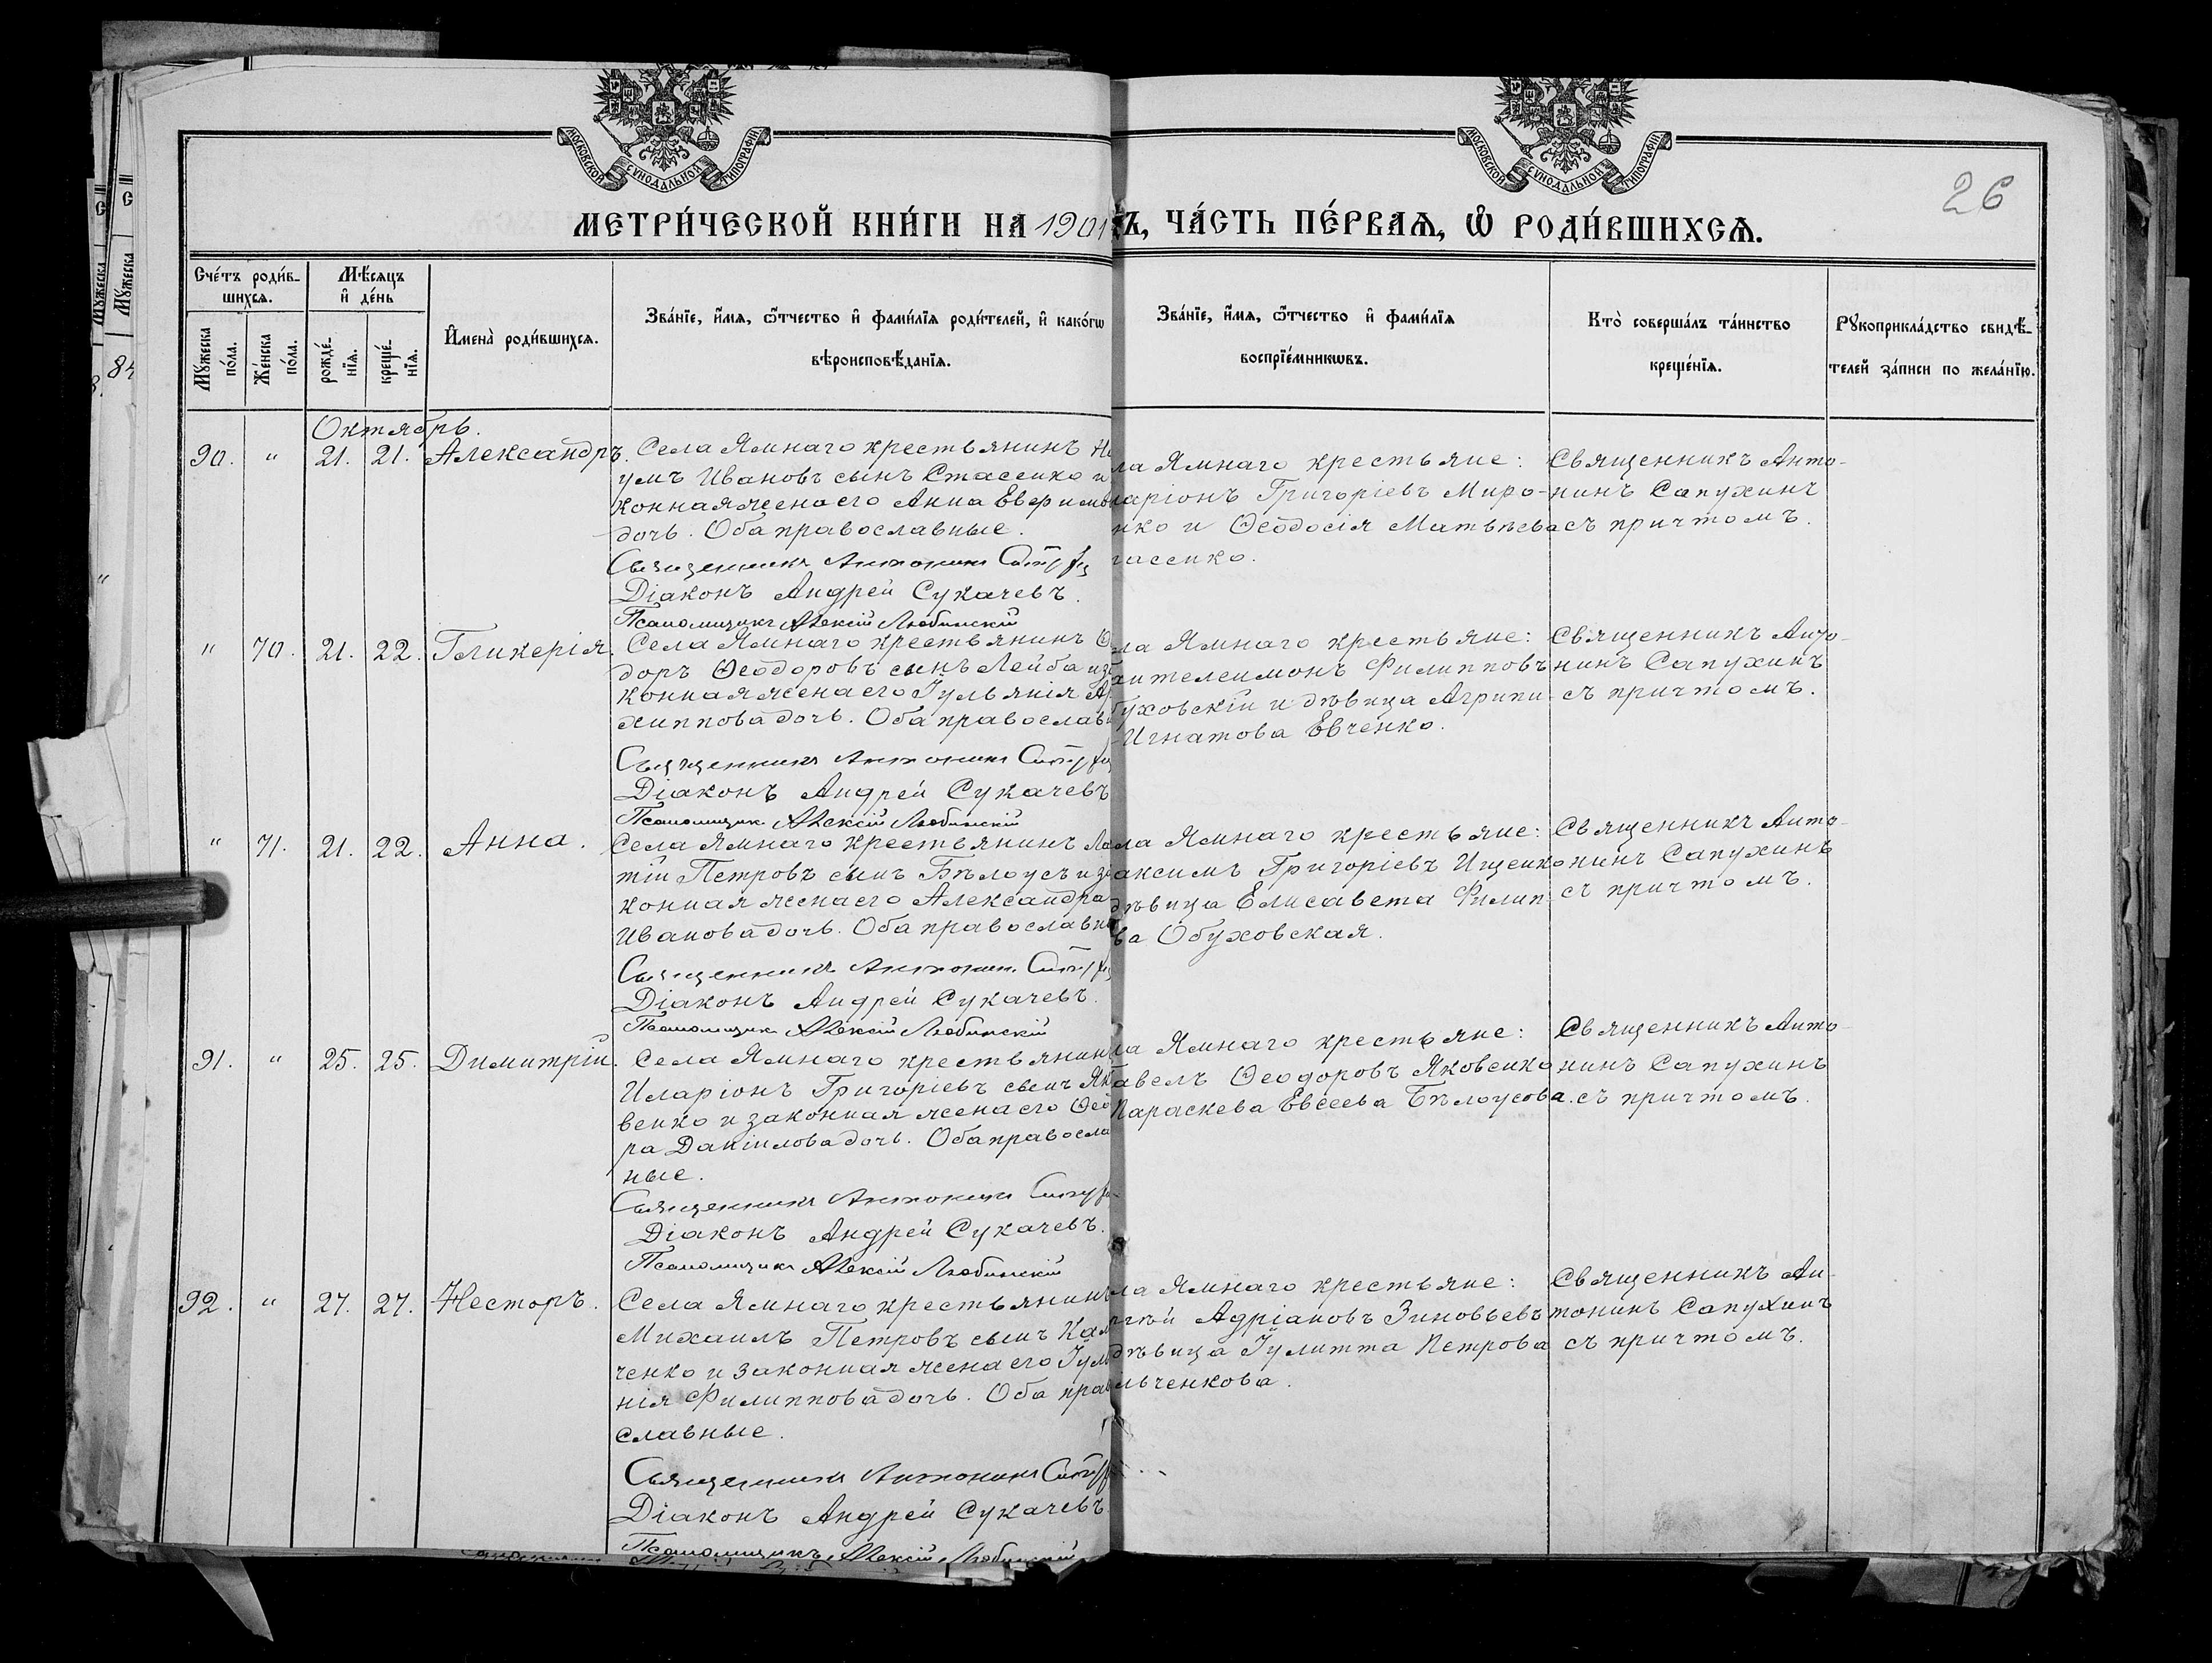 МОСКОВСКОЙ СУНОДАЛЬНОЙ ТИПОГРАФІИ
МОСКОВСКОЙ СУНОДАЛЬНОЙ ТИПОГРАФІИ
26
МЕТРИ́ЧЕСКОЙ КНИ́ГИ НА 1901
Ъ, ЧА́СТЬ ПЕ́РВАѦ, Ѽ РОДИ́ВШИХСѦ.
Сче́тъ роди́в-
шихсѧ.
Мѣ́сѧцъ
и҆ де́нь
Мꙋ́жеска
по́ла.
Же́нска
по́ла.
рожде́-
нїѧ.
креще́-
нїѧ.
И҆мена̀ роди́вшихсѧ.
Зва́нїе, и҆́мѧ, ѻ҆́тчество и҆ фами́лїѧ роди́телей, и҆ како́гѡ
вѣроисповѣ́данїѧ.
Зва́нїе, и҆́мѧ, ѻ҆́тчество и҆ фами́лїѧ
воспрїе́мникѡвъ.
Кто̀ соверша́лъ та́инство
креще́нїѧ.
Рꙋкоприкла́дство свидѣ́-
телей за́писи по жела́нїю.
Октябрь.
90. " 21. 21. Александръ.
Села Ямнаго крестьянинъ
умъ Ивановъ сынъ Стасенко и
конная жена его Анна Евфимов
дочь. Оба православные.
Священникъ Антонинъ
Діаконъ Андрей Сукачевъ.
Псаломщикъ Алексій Любинскій
ла Ямнаго крестьяне:
ларіонъ Григоріевъ Миро-
нко и Ѳеодосія Матѳѣева
тасенко.
Священникъ Анто-
нинъ Сапухинъ
съ причтомъ.
" 70. 21. 22. Гликерія.
Села Ямнаго крестьянинъ Ѳ
доръ Ѳеодоровъ сынъ Лейба и з
конная жена его Іульянія Ар
хиппова дочь. Оба православ
Священникъ Антонинъ
Діаконъ Андрей Сукачевъ
Псаломщикъ Алексій Любинскій
ла Ямнаго крестьяне:
антелеимонъ Филипповъ
буховскій и дѣвица Агрипи-
Игнатова Евченко.
Священникъ Анто-
нинъ Сапухинъ
съ причтомъ.
" 71. 21. 22. Анна.
Села Ямнаго крестьянинъ
тій Петровъ сынъ Бѣлоусъ и за
конная жена его Александра
Иванова дочь. Оба православн
Священникъ Антонинъ
Діаконъ Андрей Сукачевъ.
Псаломщикъ Алексій Любинскій
ла Ямнаго крестьяне:
аксимъ Григоріевъ Ищенко
дѣвица Елисавета Филип-
ва Обуховская.
Священникъ Анто-
нинъ Сапухинъ
съ причтомъ.
91. " 25. 25. Димитрій.
Села Ямнаго крестьянин
Иларіонъ Григоріевъ сынъ Як
венко и законная жена его Ѳео
ра Даніилова дочь. Оба правосла
ные.
Священникъ Антонинъ
Діаконъ Андрей Сукачевъ.
Псаломщикъ Алексій Любинскій
ла Ямнаго крестьяне:
авелъ Ѳеодоровъ Яковенко
Параскева Евсеева Бѣлоусова.
Священникъ Анто-
нинъ Сапухинъ
съ причтомъ.
92. " 27. 27. Несторъ.
Села Ямнаго крестьянинъ
Михаилъ Петровъ сынъ Кал
ченко и законная жена его Іул
нія Филиппова дочь. Оба прав
славные.
Священникъ Антонинъ
Діаконъ Андрей Сукачевъ.
Псаломщикъ Алексій Любинскій
ла Ямнаго крестьяне:
ргѣй Адріановъ Зиновьевъ
дѣвица Іулитта Петрова
льченкова.
Священникъ Ан-
тонинъ Сапухинъ
съ причтомъ.